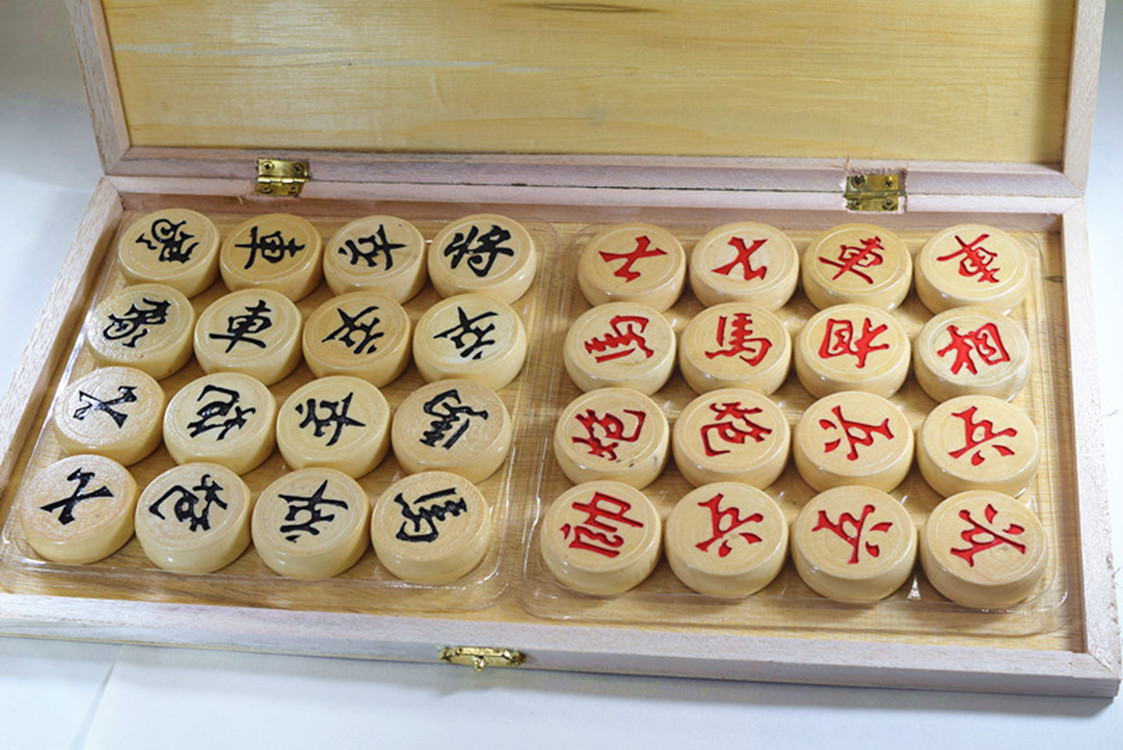 象 車 卒 将 士 士 車 車
象 車 卒 卒 馬 馬 相 相
士 炮 卒 馬 炮 炮 兵 兵
士 炮 卒 馬 帥 兵 兵 兵